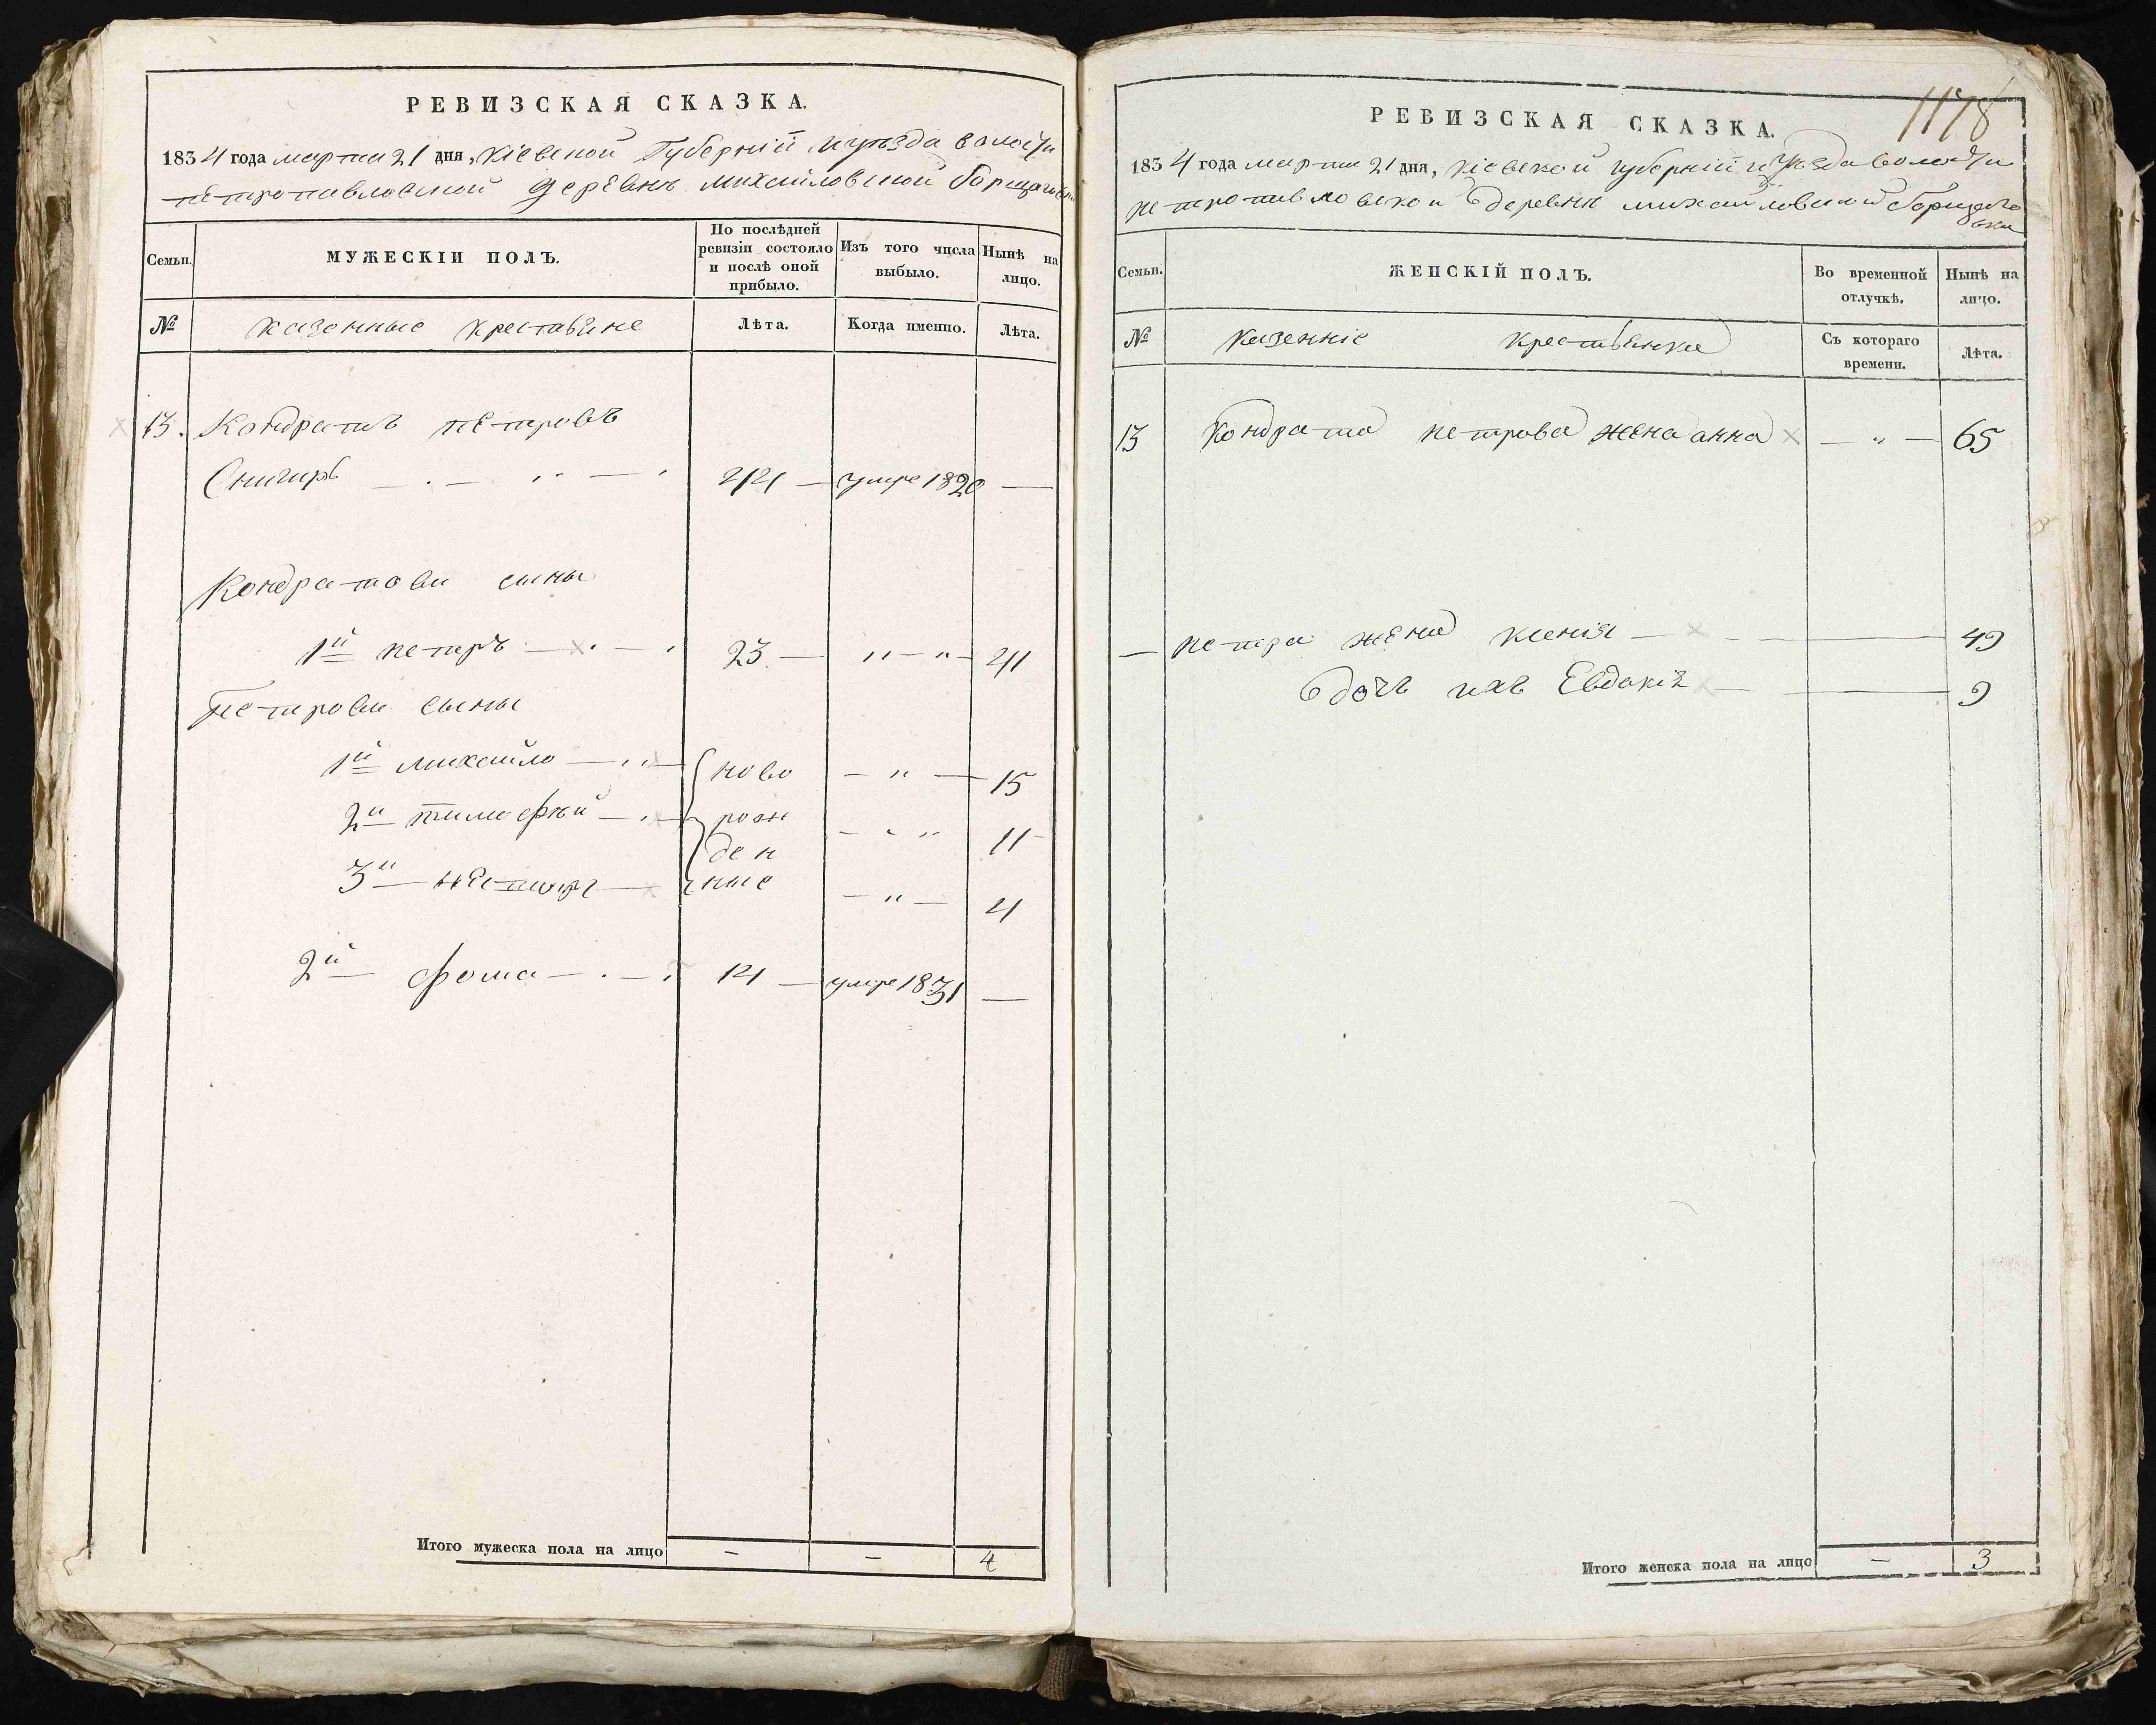 РЕВИЗСКАЯ СКАЗКА.
1834 года марта 21 дня, Кіевской Губерніи и уѣзда волости
петропавловской деревнѣ михайловской борщаговки
Семьи.
МУЖЕСКІИ ПОЛЪ.
По послѣдней ревизіи состояло и послѣ оной прибыло.
Изъ того числа выбыло.
Нынѣ на лицо.
№ казенные крестьяне Лѣта. Когда именно. Лѣта.
13. Кондратъ петровъ
Снигирь умре 1820 —
Кондратови сины
1й петръ 23 — „ — „ — 41
Петрови сыны
1й михайло ново — „ — 15
2й тимофѣй рож — „ 11
ден
3й нѣсторъ ные — „ — 4
2й фома 14 — умре 1831 —
Итого мужеска пола на лицо — — 4
1178
РЕВИЗСКАЯ СКАЗКА.
1834 года марта 21 дня, кіевской губерніи и уѣзда волости
петропавловской деревнѣ михайловской борщаго
вки
Семьи.
ЖЕНСКІЙ ПОЛЪ.
Во временной отлучкѣ.
Нынѣ на лицо.
№ казенніе крестьянки Съ котораго времени. Лѣта.
13 Кондрата петрова жена анна — „ — 65
— петра жена ксенія — 49
дочь ихъ Евдокія — 9
Итого женска пола на лицо — 3